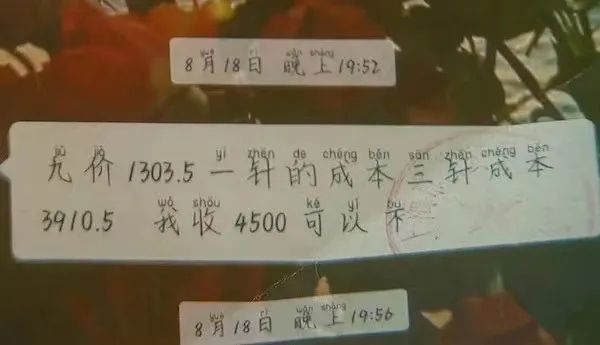 yuè rì wǎn shàng
8月18日 晚上19:52
jiǔ jià yì zhēn de chéng běn sān zhēn chéng běn
九价1303.5一针的成本三针成本
wǒ shōu kě yǐ bù
3910.5 我收4500可以不
yuè rì wǎn shàng
8月18日 晚上19:56